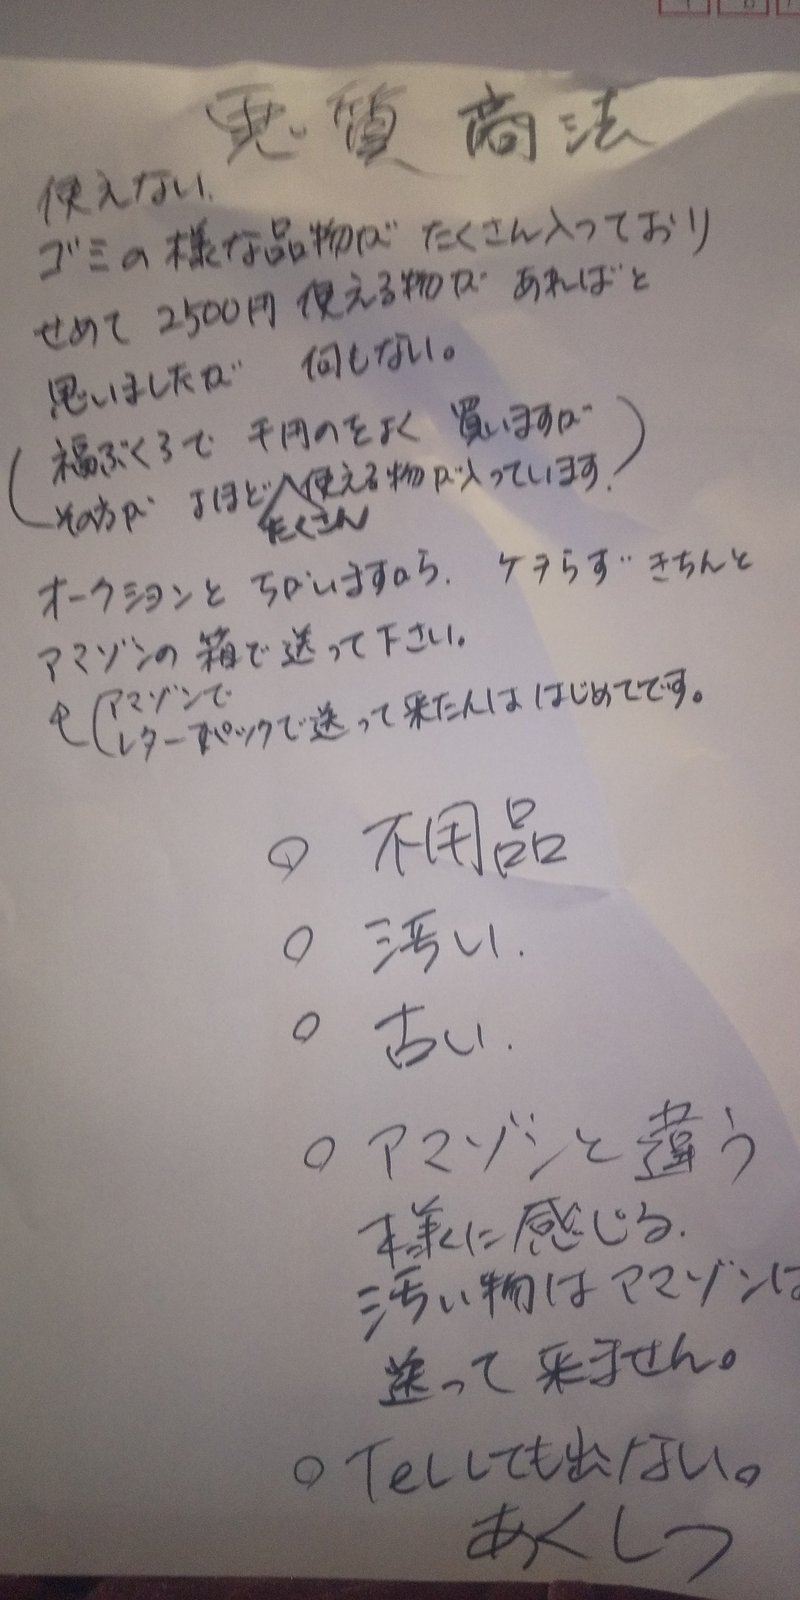 悪質商法
使えない.
ゴミの様な品物が たくさん入っており
せめて 2500円 使える物が あればと
思いましたが 何もない。
(福ぶくろで 千円のをよく 買いますが
その方が よほど たくさん 使える物が入っています.)
オークションと ちがいますから. ケチらず きちんと
アマゾンの 箱で送って下さい。
(アマゾンで
レターパックで送って来たんは はじめてです。
○ 不用品
○ 汚い.
○ 古い.
○ アマゾンと違う
様に感じる.
汚い物はアマゾンは
送って来ません。
○ Telしても出ない。
あくしつ